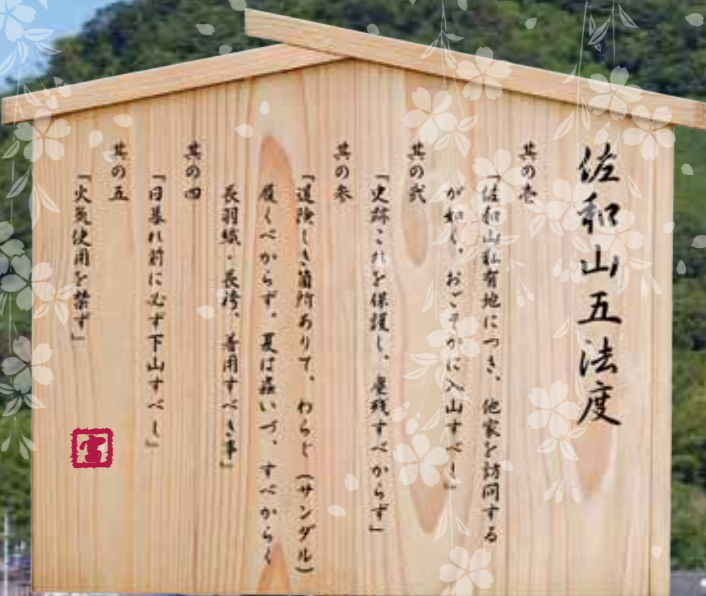 佐和山五法度
其の壱
「佐和山私有地につき、他家を訪問する
が如く、おごそかに入山すべし」
其の弐
「史跡これを保護し、塵残すべからず」
其の参
「道険しき箇所ありて、わらじ(サンダル)
履くべからず、夏は蟲いづ、すべからく
長羽織・長袴、着用すべき事」
其の四
「日暮れ前に必ず下山すべし」
其の五
「火気使用を禁ず」